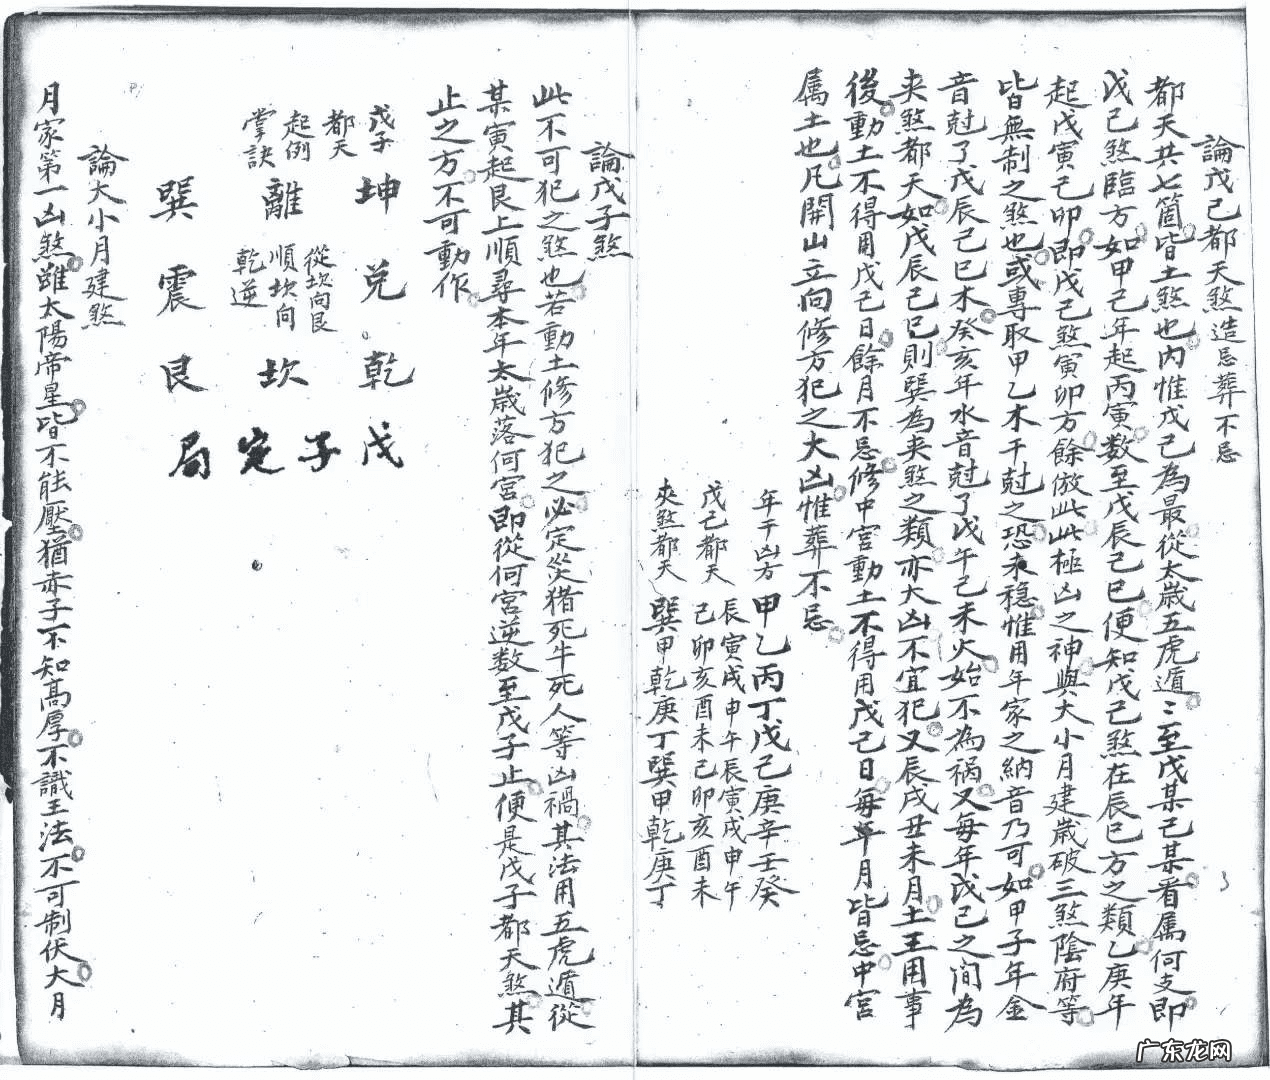 論戊己都天煞造忌葬不忌
都天共七箇皆土煞也內惟戊己為最從太歲五虎遁〻至戊某己某看属何支即
戊己煞臨方如甲己年起丙寅数至戊辰己巳便知戊己煞在辰巳方之類乙庚年
起戊寅己卯即戊己煞寅卯方餘倣此此極凶之神與大小月建歲破三煞陰府等
皆無制之煞也或專取甲乙木干尅之恐未穩惟用年家之納音乃可如甲子年金
音尅了戊辰己巳木癸亥年水音尅了戊午己未火始不為禍又每年戊己之間為
夾煞都天如戊辰己巳則巽為夾煞之類亦大凶不宜犯又辰戌丑未月土王用事
後動土不得用戊己日餘月不忌修中宮動土不得用戊己日每年月皆忌中宮
属土也凡開山立向修方犯之大凶惟葬不忌
年干凶方 甲乙丙丁戊己庚辛壬癸
戊己都天 辰寅戌申午辰寅戌申午
巳卯亥酉未巳卯亥酉未
夾煞都天 巽甲乾庚丁巽甲乾庚丁
論戊子煞
此不可犯之煞也若動土修方犯之必定災猪死牛死人等凶禍其法用五虎遁從
某寅起艮上順尋本年太歲落何宮即從何宮逆数至戊子止便是戊子都天煞其
止之方不可動作
戊子
都天
起例
掌訣
坤 兌 乾 戊
離 從坎向艮
順坎向
乾逆 坎 子
定
巽 震 艮 局
論大小月建煞
月家第一凶煞雖太陽帝星皆不能壓猶赤子不知高厚不識王法不可制伏大月
广东龙网